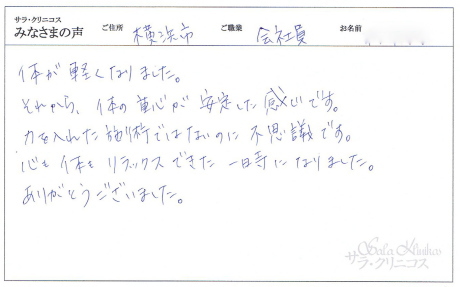 サラ・クリニコス
みなさまの声 ご住所 横浜市 ご職業 会社員 お名前
体が軽くなりました。
それから、体の重心が安定した感じです。
力を入れた施術ではないのに不思議です。
心も体もリラックスできた一時になりました。
ありがとうございました。
Sala Klinikos
サラ・クリニコス